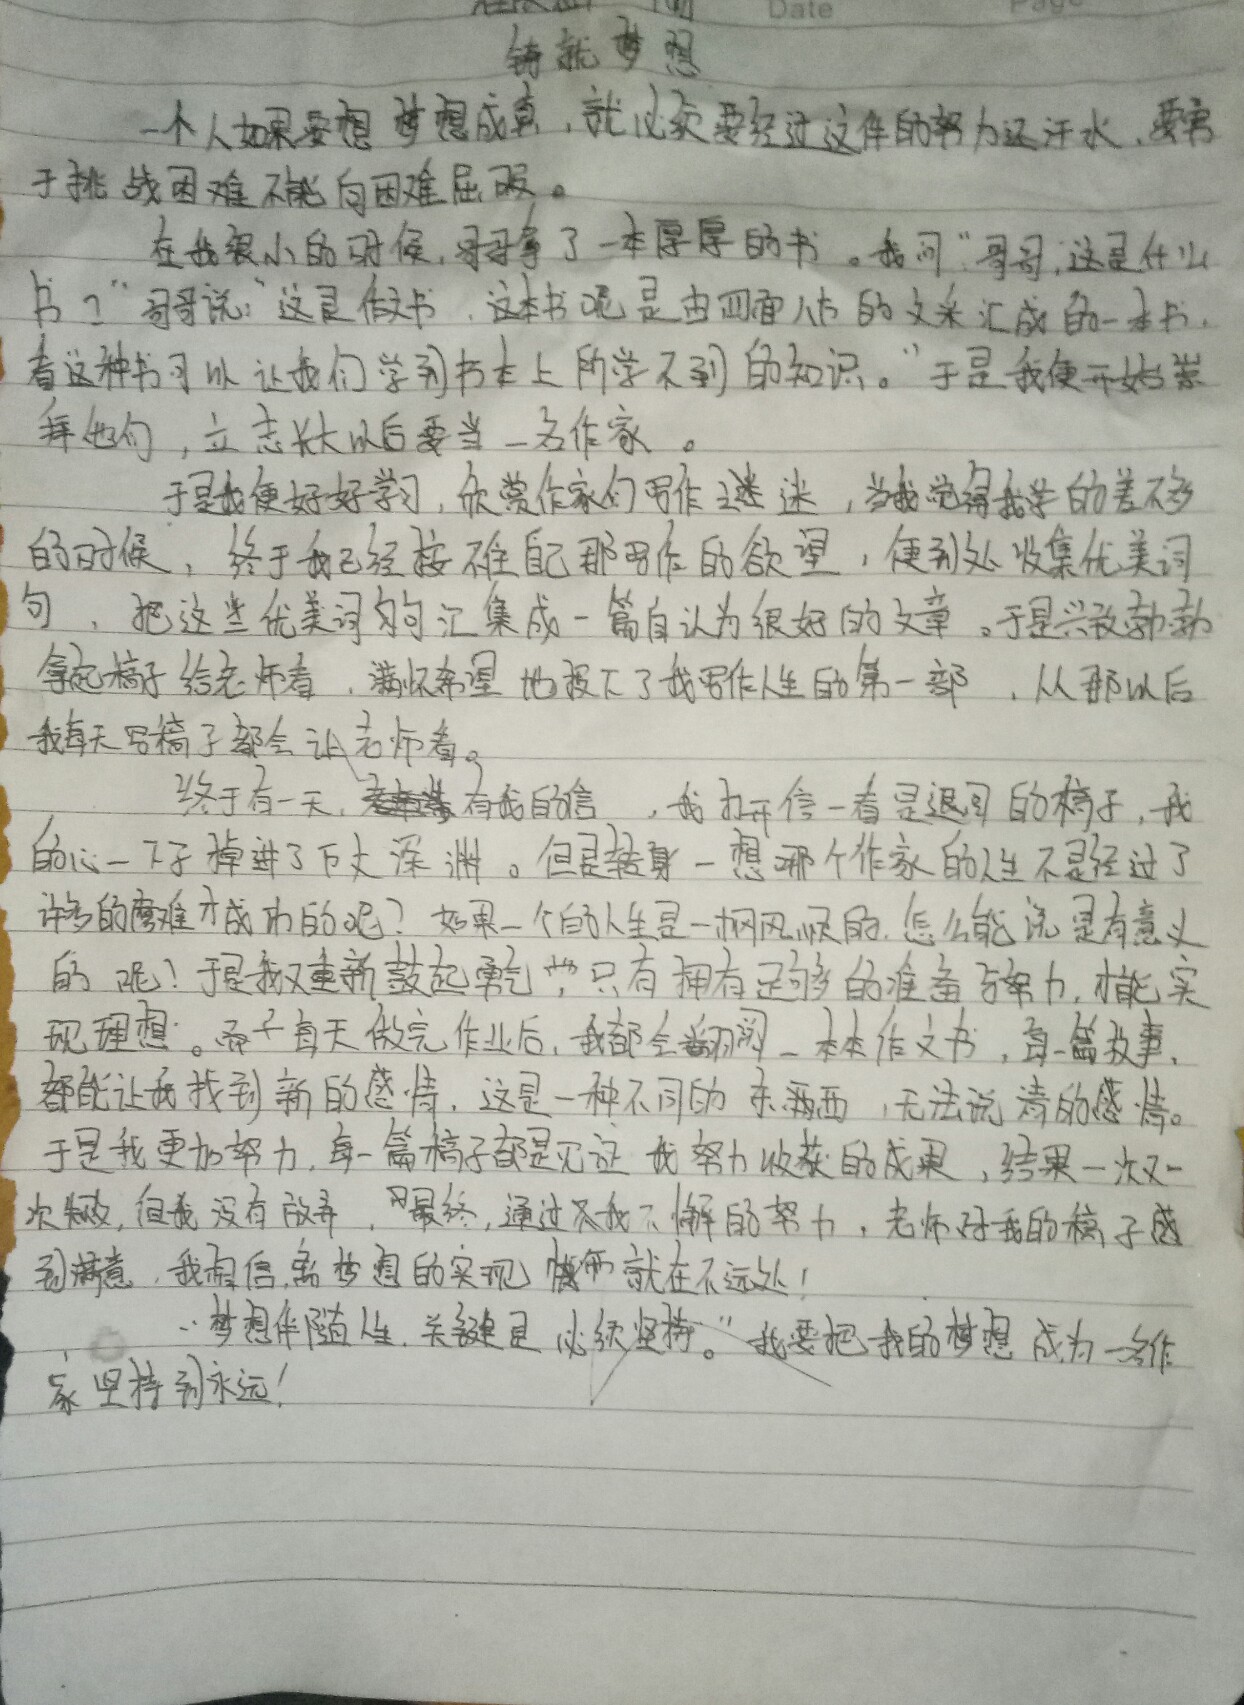 Date Page
铸就梦想
一个人如果要想梦想成真，就必须要经过这件的努力还汗水，要勇
于挑战困难不能向困难屈服。
在我很小的时候，哥哥拿了一本厚厚的书。我问“哥哥，这是什么
书？”哥哥说：“这是作文书，这本书呢是由四面八方的文采汇成的一本书，
看这种书可以让我们学到书本上所学不到的知识。”于是我便开始崇
拜他们，立志长大以后要当一名作家。
于是我便好好学习，欣赏作家们写作之谜迷，当我觉得我学的差不多
的时候，终于我已经按不住自己那写作的欲望，便到处收集优美词
句，把这些优美词句句汇集成一篇自认为很好的文章。于是兴致勃勃
拿起稿子给老师看，满怀希望地投下了我写作人生的第一部，从那以后
我每天写稿子都会让老师看。
终于有一天，有我的信，我打开信一看是退回的稿子，我
的心一下子掉进了万丈深渊。但是转身一想哪个作家的人生不是经过了
许多的磨难才成功的呢？如果一个的人生是一帆风顺的，怎么能说是有意义
的呢？于是我又重新鼓起勇气，只有拥有足够的准备与努力，才能实
现理想。每天做完作业后，我都会翻阅一本本作文书，每一篇故事，
都能让我找到新的感情，这是一种不同的东西，无法说清的感情。
于是我更加努力，每一篇稿子都是见证我努力收获的成果，结果一次又一
次失败，但我没有放弃，最终，通过我不懈的努力，老师对我的稿子感
到满意，我相信，离梦想的实现就在不远处！
“梦想伴随人生，关键是必须坚持。”我要把我的梦想成为一名作
家坚持到永远！